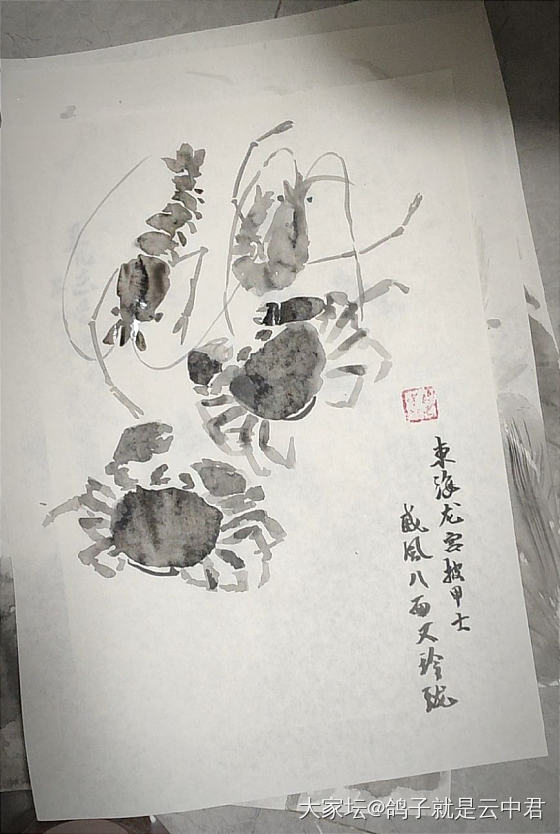 東海龙宫披甲士
威風八面又玲珑
大家坛@鸽子就是云中君